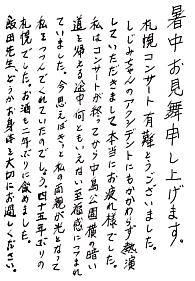 暑中お見舞申し上げます。
札幌コンサート有難とうございました。
しじみチャンのアクシデントにもかかわらず熱演
していただきまして本当にお疲れ様でした。
私はコンサートが終ってから中島公園横の暗い
道を帰える途中何ともいえない至福感につつまれ
ていました。今思えばきっと私の両親が光となって
私をつつんでくれていたのでしょう。四十五年ぶりの
札幌でした。お酒も二年ぶりに飲めました。
飯田先生どうかお身体を大切にお過しください。